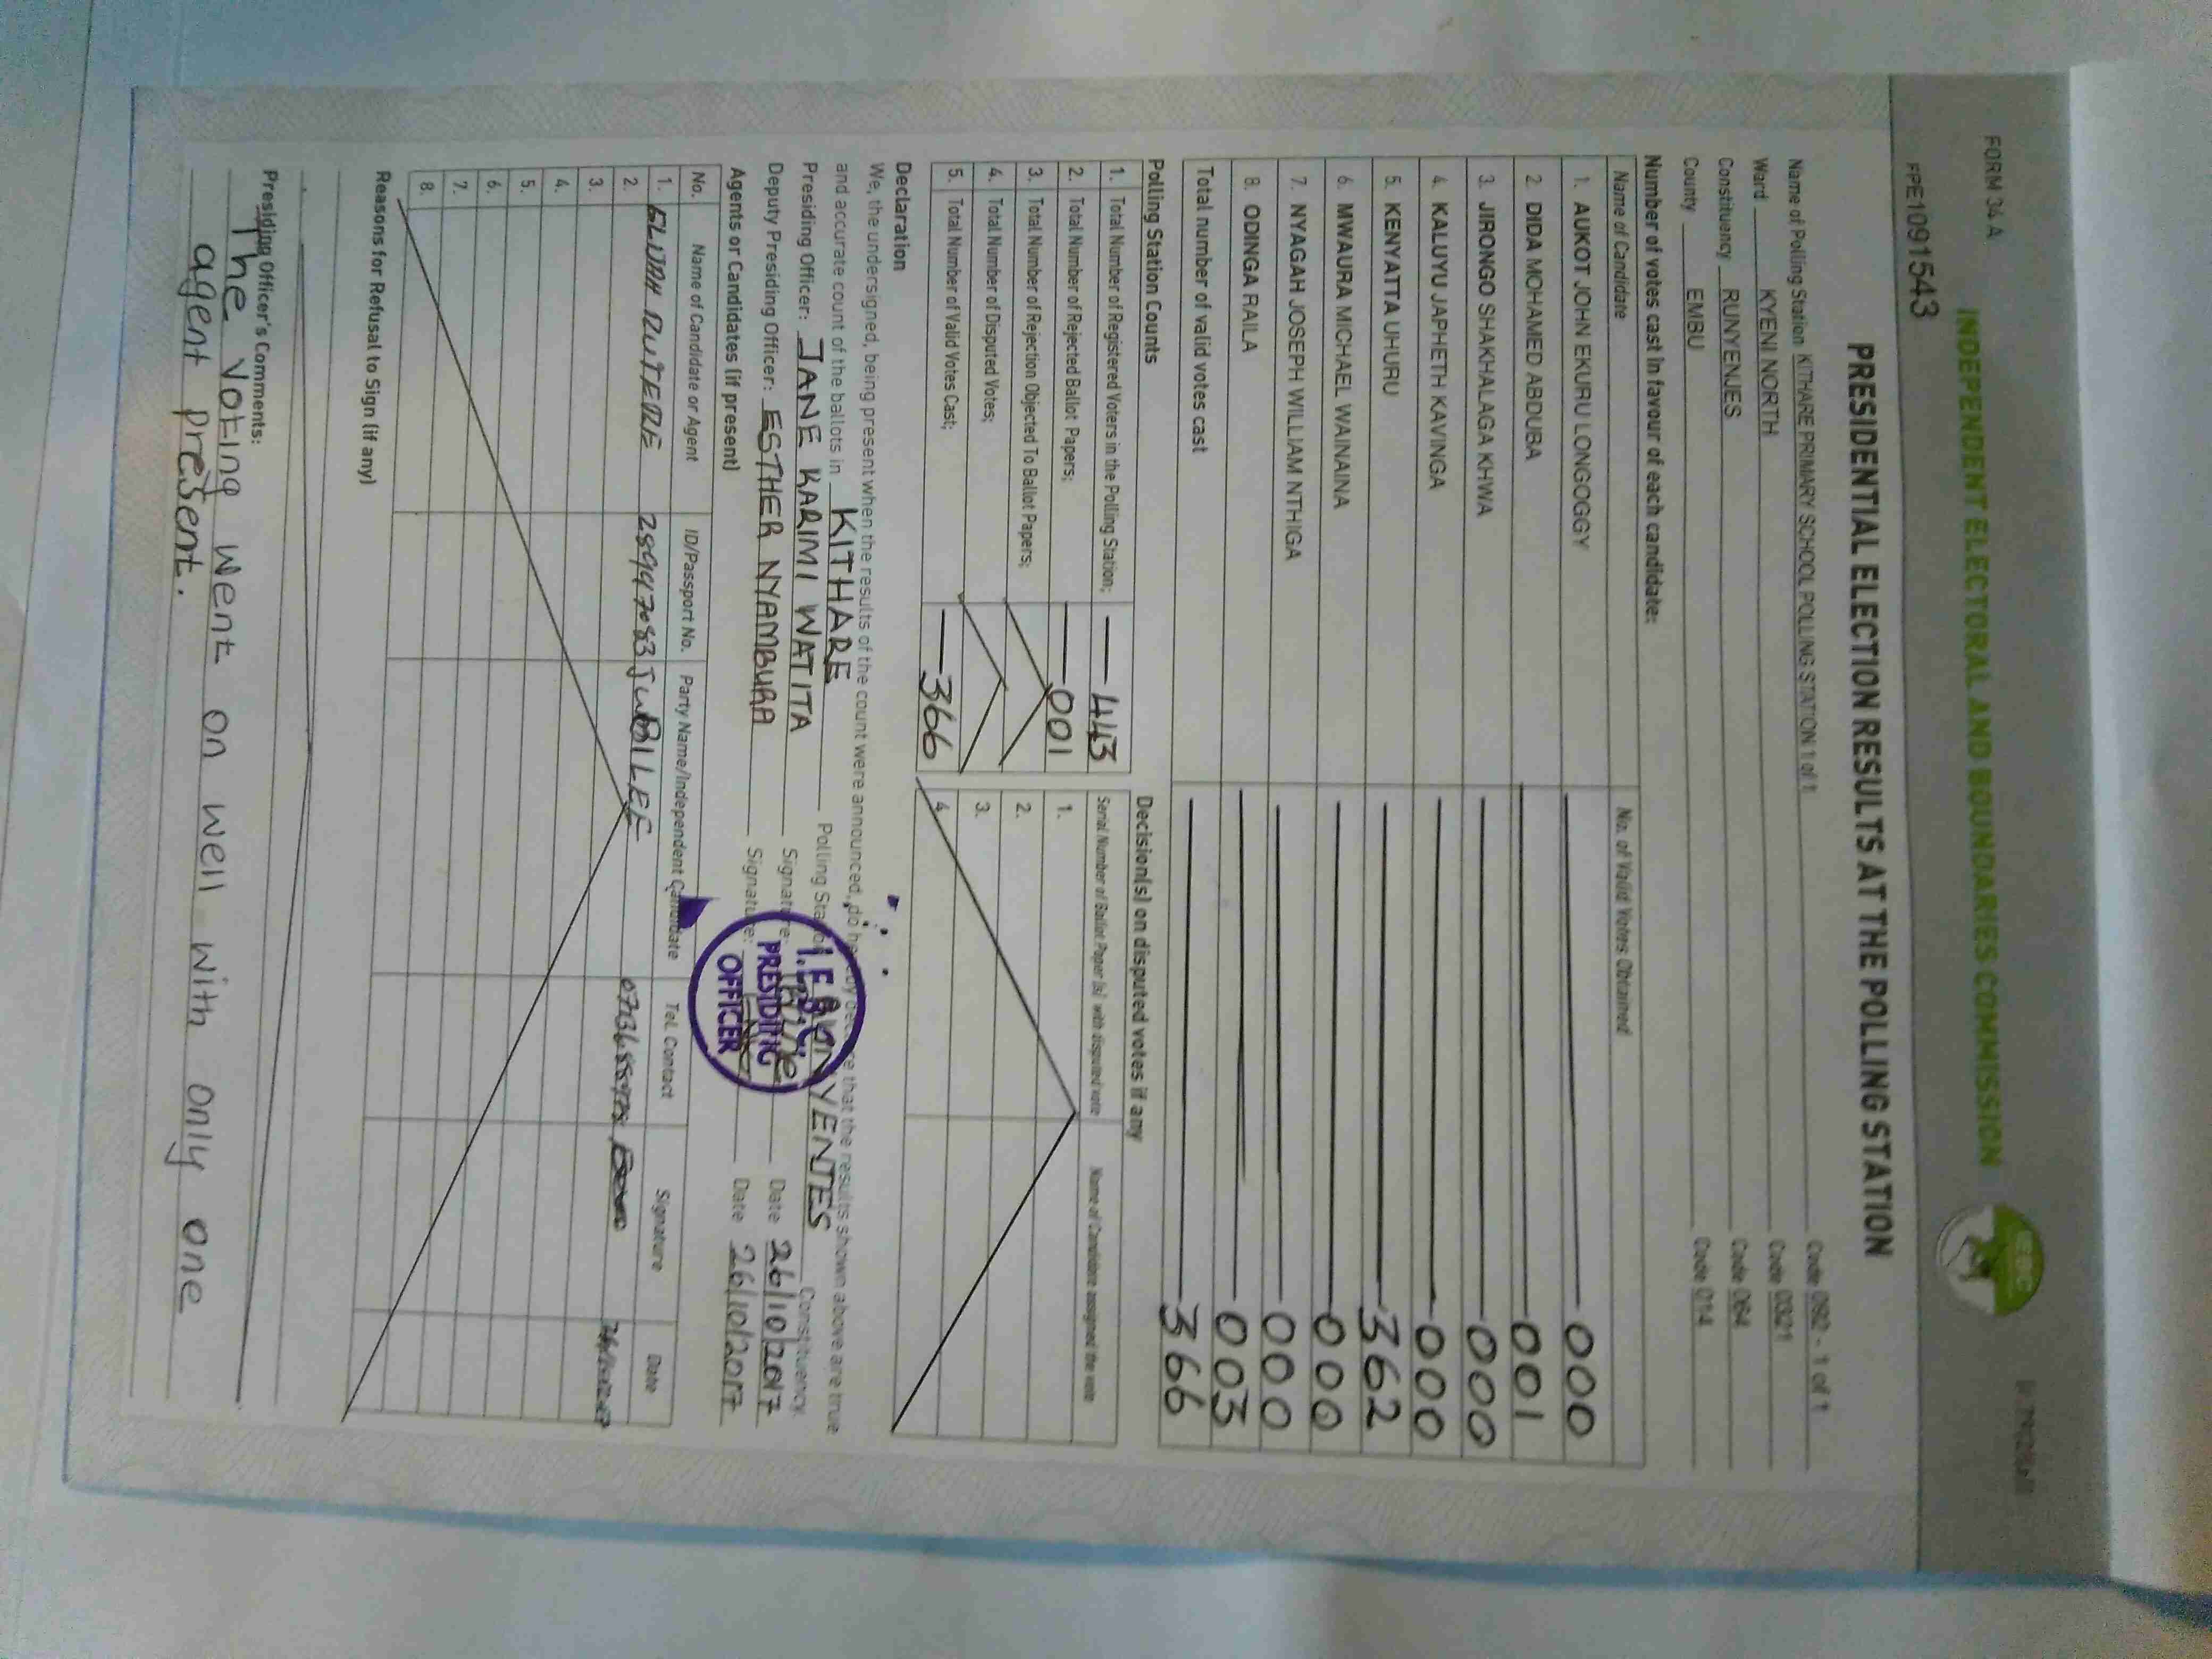 FORM 34 A
INDEPENDENT ELECTORAL AND BOUNDARIES COMMISSION
IEBC
PPE1091543
PRESIDENTIAL ELECTION RESULTS AT THE POLLING STATION
Name of Polling Station KITHARE PRIMARY SCHOOL POLLING STATION 1 of 1 Code 092 - 1 of 1
Ward KYENI NORTH Code 0321
Constituency RUNYENJES Code 064
County EMBU Code 014
Number of votes cast in favour of each candidate:
Name of Candidate No. of Valid Votes Obtained
1. AUKOT JOHN EKURU LONGOGGY 000
2. DIDA MOHAMED ABDUBA 001
3. JIRONGO SHAKHALAGA KHWA 000
4. KALUYU JAPHETH KAVINGA 000
5. KENYATTA UHURU 362
6. MWAURA MICHAEL WAINAINA 000
7. NYAGAH JOSEPH WILLIAM NTHIGA 000
8. ODINGA RAILA 003
Total number of valid votes cast 366
Polling Station Counts Decision(s) on disputed votes if any
1. Total Number of Registered Voters in the Polling Station; 443 Serial Number of Ballot Paper (s) with disputed vote Name of Candidate assigned the vote
2. Total Number of Rejected Ballot Papers; 001 1.
3. Total Number of Rejection Objected To Ballot Papers; 2.
4. Total Number of Disputed Votes; 3.
5. Total Number of Valid Votes Cast; 366 4.
Declaration
We, the undersigned, being present when the results of the count were announced, do hereby declare that the results shown above are true
and accurate count of the ballots in KITHARE Polling Station RUNYENJES Constituency.
Presiding Officer: JANE KARIMI WATITA Signature: Date 26/10/2017
Deputy Presiding Officer: ESTHER NYAMBURA Signature: Date 26/10/2017
I.E.B.C.
PRESIDING
OFFICER
Agents or Candidates (if present)
No. Name of Candidate or Agent ID/Passport No. Party Name/Independent Candidate Tel. Contact Signature Date
1. ELIJAH JUBILEE
2.
3.
4.
5.
6.
7.
8.
Reasons for Refusal to Sign (if any)
Presiding Officer's Comments:
The voting went on well with only one
agent present.